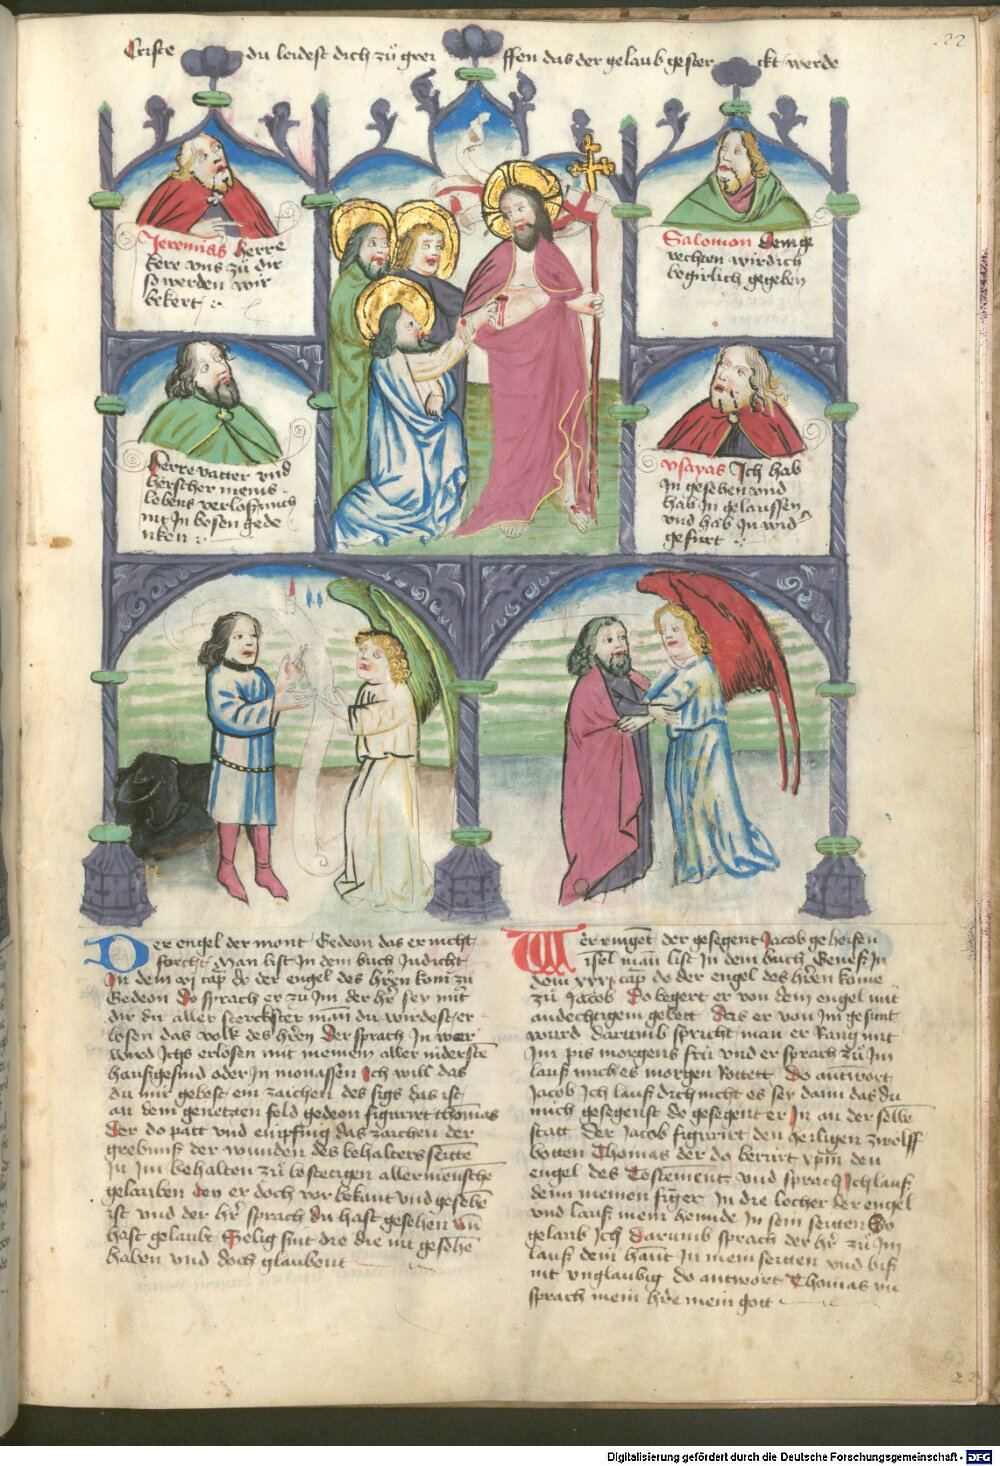 Criste du leidest dich zů grei ffen das der gelaub gester ckt werde
22
Jeremias Herre
kere vns zů dir
so werden wir
bekert
Salomon dem ge
rechten wirdich
begirlich gegeben
Herre vatter vnd
herscher meins
lebens verlos mich
nit In bosen gede
nken
ysayas Ich hab
In gesehen vnd
hab In gelaussen
vnd hab In wid
gefurt
Der engel der mont Gedeon das er nicht
forcht Man list In dem buch Judicū
In dem vi cap do der engel des h'ren kom zu
Gedeon Do sprach er zů Im der h'r sey mit
dir du aller sterckster man du wirdest er
losen das volk des h'ren Der sprach In wer
wird Ichs erlosen mit meinem aller nidersten
hausgesind oder In monassen Ich will das
du mir gebest ein zaichen des sigs das ist
an dem genetzten feld gedeon figurirt thomas
der do patt vnd empfing das zaichen der
grebnuß der wunden des behalters seitte
In Im behalten zů bestetigen aller mensche
gelauben den er doch vor bekant vnd gesehe
ist vnd der h'r sprach du hast gesehen vn
hast gelaubt Selig sint die die nit gesehe
haben vnd doch glaubent
Wer ringet der gesegent Jacob geheisen
isrl man list In dem buch Genesis In
dem xxxii cap do der engel des h'ren kome
zů Jacob Do begert er von dem engel mit
andechtigem gebett Das er von Im gesunt
wurd darumb spricht man er Rang mit
Im pis morgens frů vnd er sprach zů Im
lauß mich es morgen Rottett Do antwort
Jacob Ich lauß dich nicht es sey dann das du
mich gesegenst do gesegent er In an der selbē
statt Der Jacob figurirt den heiligen zwolff
botten Thomas der do berurt xpm den
engel des Testement vnd sprach Ich lauß
denn meinen finger In die locher der engel
vnd lauß mein hennde In sein seitten So
gelaub Ich Darumb sprach der h'r zů Im
lauß dein hant In mein seitten vnd biß
nit vnglaubig do antwort Thomas vn
sprach mein h're mein gott
22
Digitalisierung gefördert durch die Deutsche Forschungsgemeinschaft - DFG